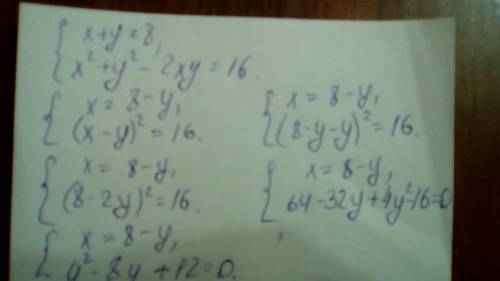 { x+y=8,
x²+y²-2xy=16.
{ x=8-y,
(x-y)²=16.
{ x=8-y,
(8-y-y)²=16.
{ x=8-y,
(8-2y)²=16.
{ x=8-y,
64-32y+4y²-16=0
{ x=8-y,
y²-8y+12=0.